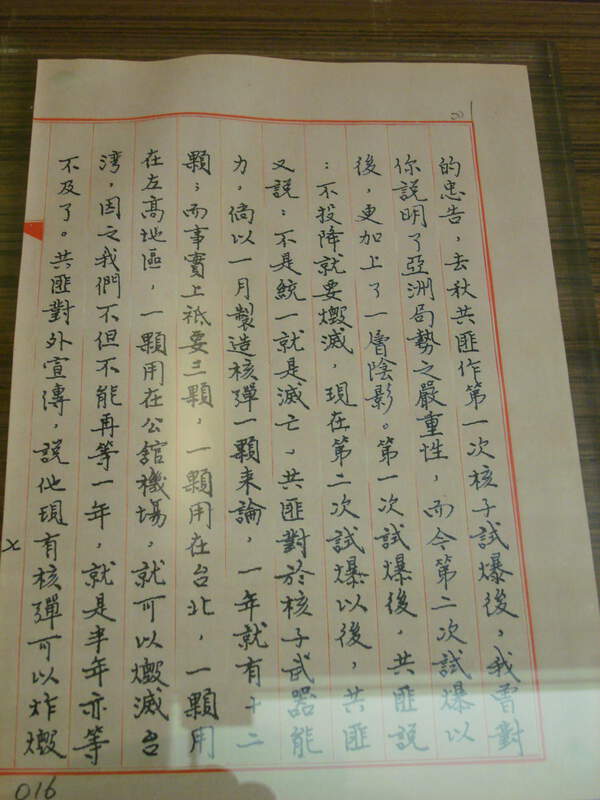 的忠告，去秋共匪作第一次核子試爆後，我曾對
你説明了亞洲局勢之嚴重性，而今第二次試爆以
後，更加上了一層陰影。第一次試爆後，共匪説
：不投降就要燬滅，現在第二次試爆以後，共匪
又説：不是統一就是滅亡、共匪對於核子武器能
力，倘以一月製造核彈一顆來論，一年就有十二
顆；而事實上祗要三顆，一顆用在台北，一顆用
在左高地區，一顆用在公館機場，就可以燬滅台
湾，因之我們不但不能再等一年，就是半年亦等
不及了。共匪對外宣傳，説他現有核彈可以炸燬
x
016